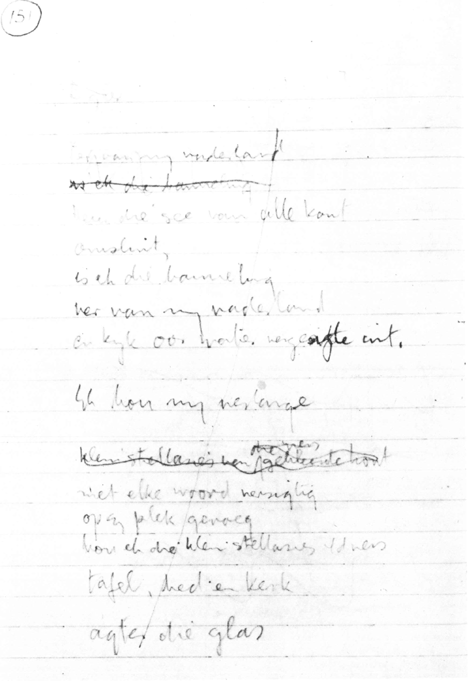 15
van my vaderland
is ek die banneling
die see van alle kant
omsluit,
is ek die banneling
ver van my vaderland
en kyk oor water vergesigte uit.
Ek bou my verlange
klein stellasies van gekleurde hout
met elke woord versigtig
op sy plek gevoeg
bou ek die klein stellasies
tafel, bed en kerk
agter die glas